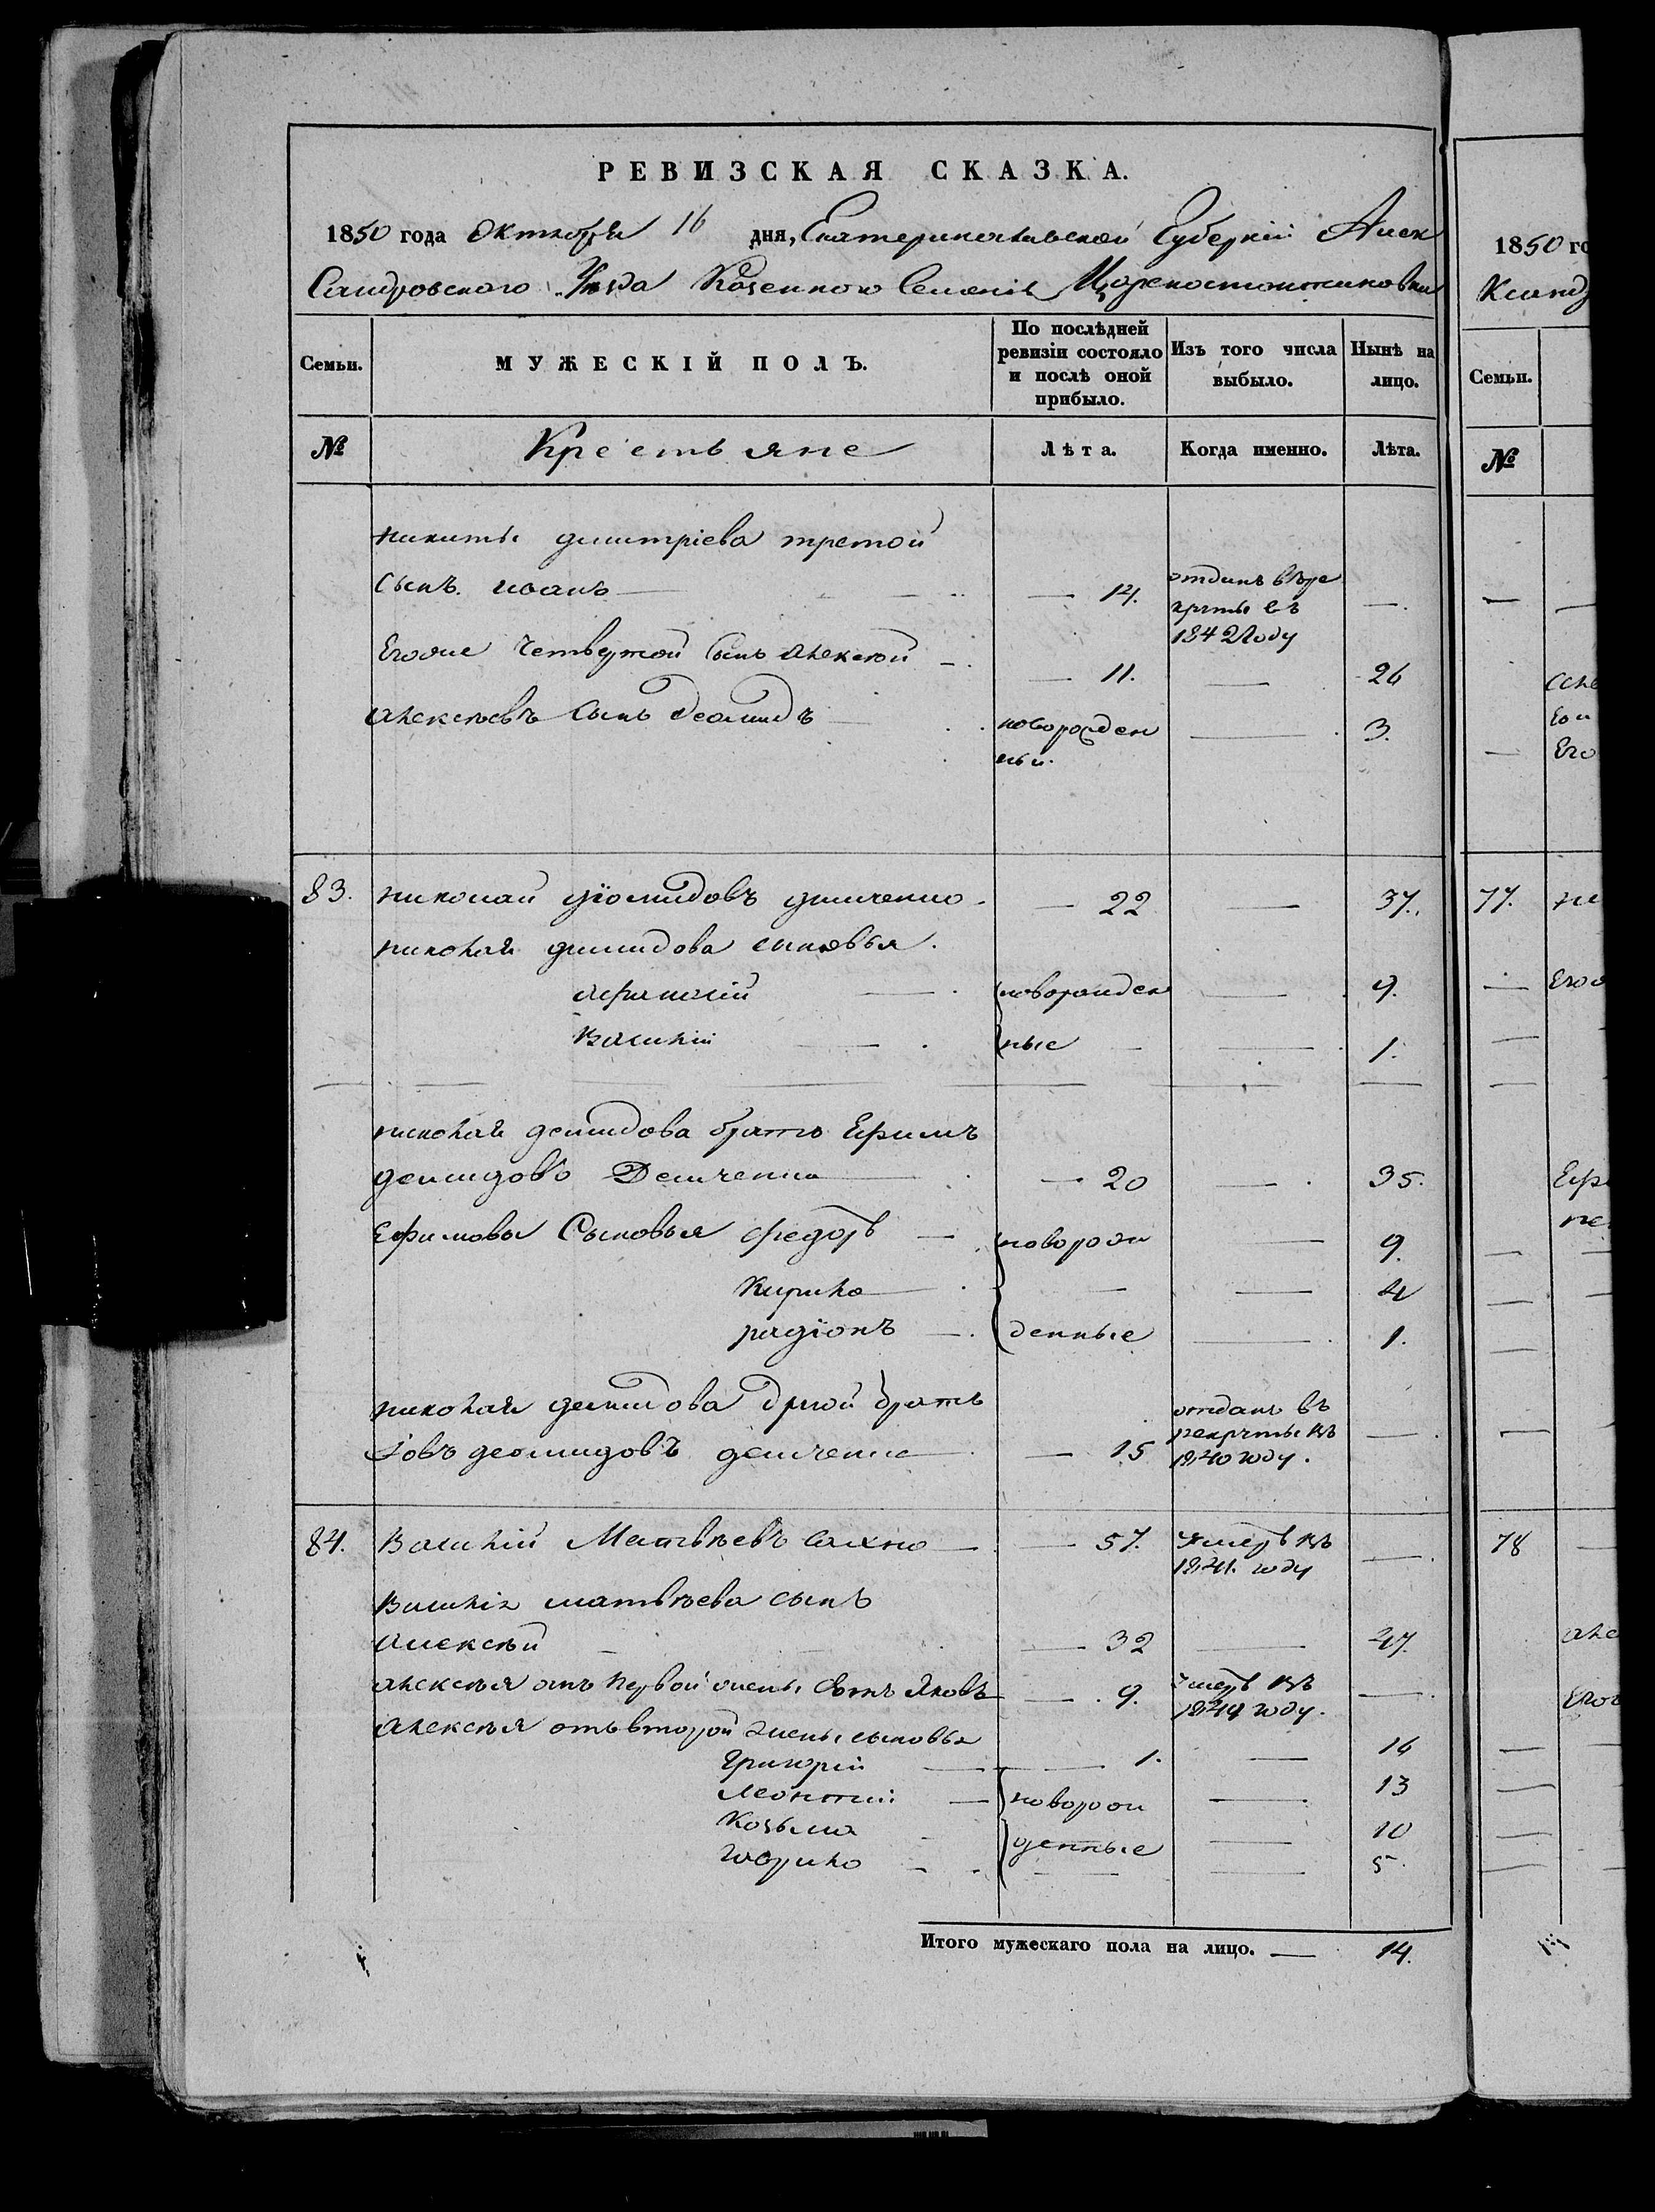 РЕВИЗСКАЯ СКАЗКА.
1850 года октября 16 дня, Екатеринославской Губернии Алек
сандровского Уезда Казенного Селения Цареконстантиновки
Семьи.
МУЖЕСКІЙ ПОЛЪ.
По послѣдней ревизіи состояло и послѣ оной прибыло.
Изъ того числа выбыло.
Нынѣ на лицо.
№ Крестьяне Лѣта. Когда именно. Лѣта.
никиты димитріева третой
сынъ иванъ — 14. отданъ в ре
круты въ
1842 году —
Егоже четвертой сынъ алексѣй — 11. — 26
алексѣевъ сынъ деомидъ новорожден
ный — 3.
83. николай діомидовъ демченко — 22 — 37.
николая димидова сыновья
афанасій новорожден — 9.
Василій ные — 1.
николая демидова братъ Ефимъ
демидовъ Демченко — 20 — 35.
Ефимовы Сыновья федоръ новорож — 9.
Кирило — — 4
радіонъ денные — 1.
николая демидова другой братъ
Іовъ деомидовъ демченко — 15 отданъ въ
рекруты въ
1840 году. —
84. Василий Матвѣевъ Сахно — 57. умеръ въ
1841. году —
Василія матвѣева сынъ
алексѣй — 32 — 47.
алексѣя отъ первой жены сынъ Яковъ — 9. умеръ въ
1844 году. —
алексѣя отъ второй жены сыновья
Григорій — 1. — 16
Леонтий новорож — 13
Козьма денные — 10
Гаврило — — 5.
Итого мужескаго пола на лицо. — 14.
1850 го
Ксанд
Семьи.
№
77.
78